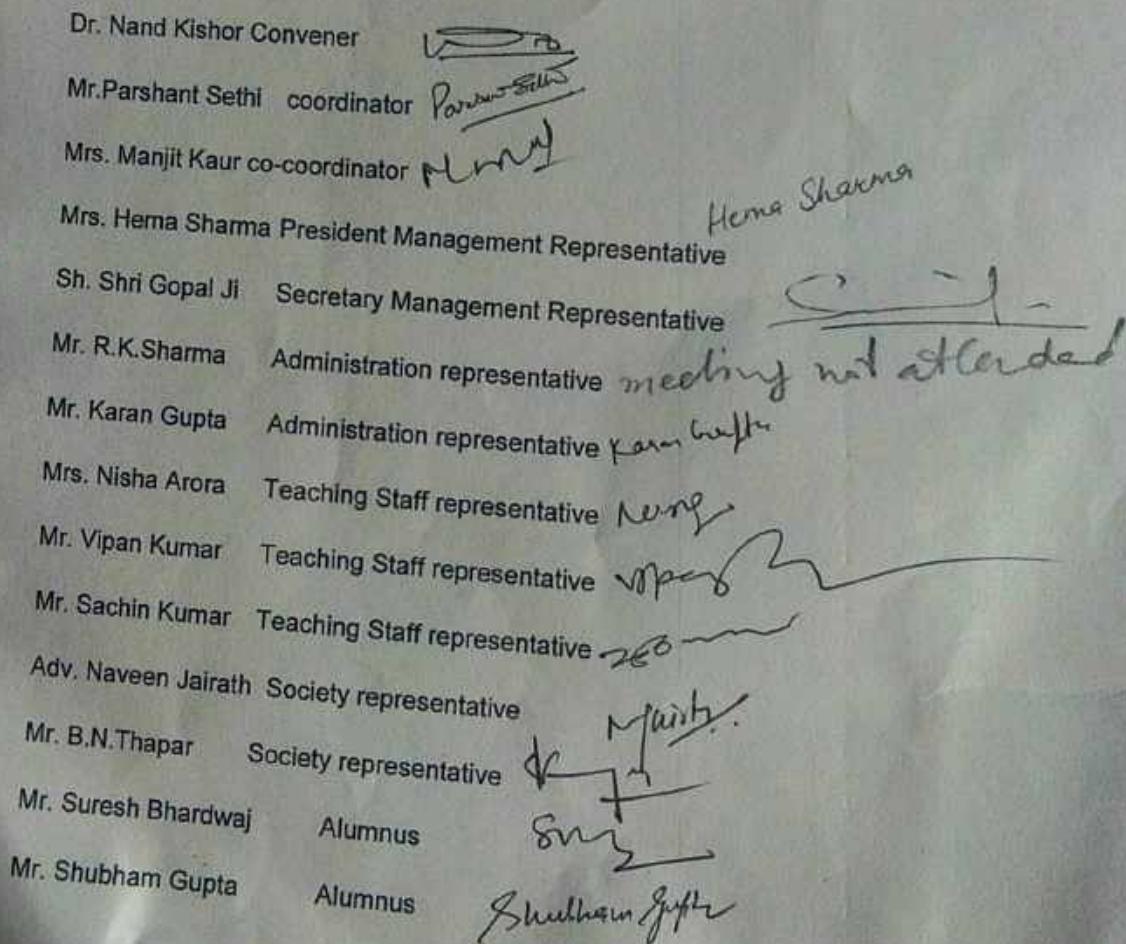 Dr. Nand Kishor Convener
Mr.Parshant Sethi coordinator Parshant Sethi
Mrs. Manjit Kaur co-coordinator
Mrs. Hema Sharma President Management Representative Hema Sharma
Sh. Shri Gopal Ji Secretary Management Representative
Mr. R.K.Sharma Administration representative meeting not attended
Mr. Karan Gupta Administration representative Karan Gupta
Mrs. Nisha Arora Teaching Staff representative
Mr. Vipan Kumar Teaching Staff representative
Mr. Sachin Kumar Teaching Staff representative
Adv. Naveen Jairath Society representative
Mr. B.N.Thapar Society representative
Mr. Suresh Bhardwaj Alumnus
Mr. Shubham Gupta Alumnus Shubham Gupta